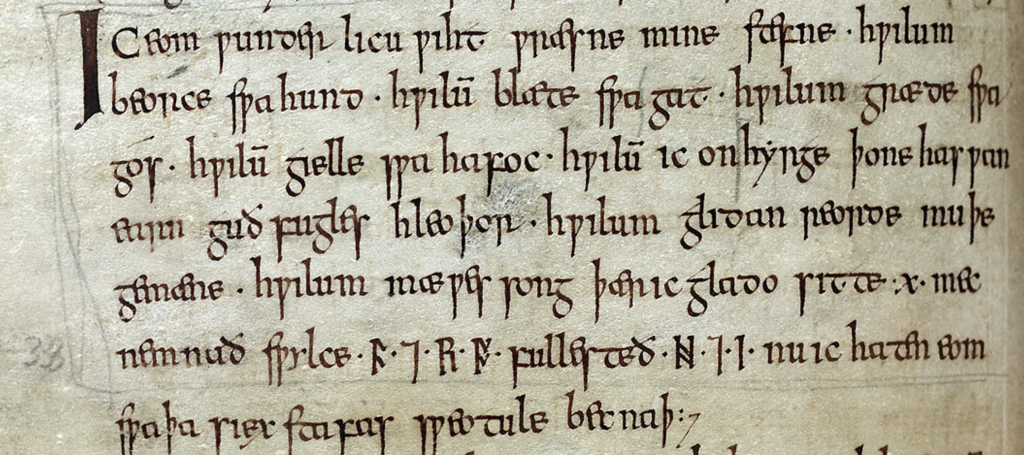 IC eom ƿunderlicu ƿiht ƿræsne mine stefne · hƿilum
beorce sƿa hund · hƿilū blæte sƿa gat · hƿilum græde sƿa
gos · hƿilū gielle sƿa hafoc · hƿilū ic onhyrge þone hasƿan
earn guð fugles hleoþor · hƿilum glidan reorde muþe
gemæne · hƿilum mæƿes song þær ic glado sitte ·x· mec
nemnað sƿylce · ᚷ · ⁊ · ᚱ · ᚩ · fullesteð · ᚻ · ⁊ · ᛁ · nu ic haten eom
sƿa þa siex stafas sƿeotule becnaþ :⁊